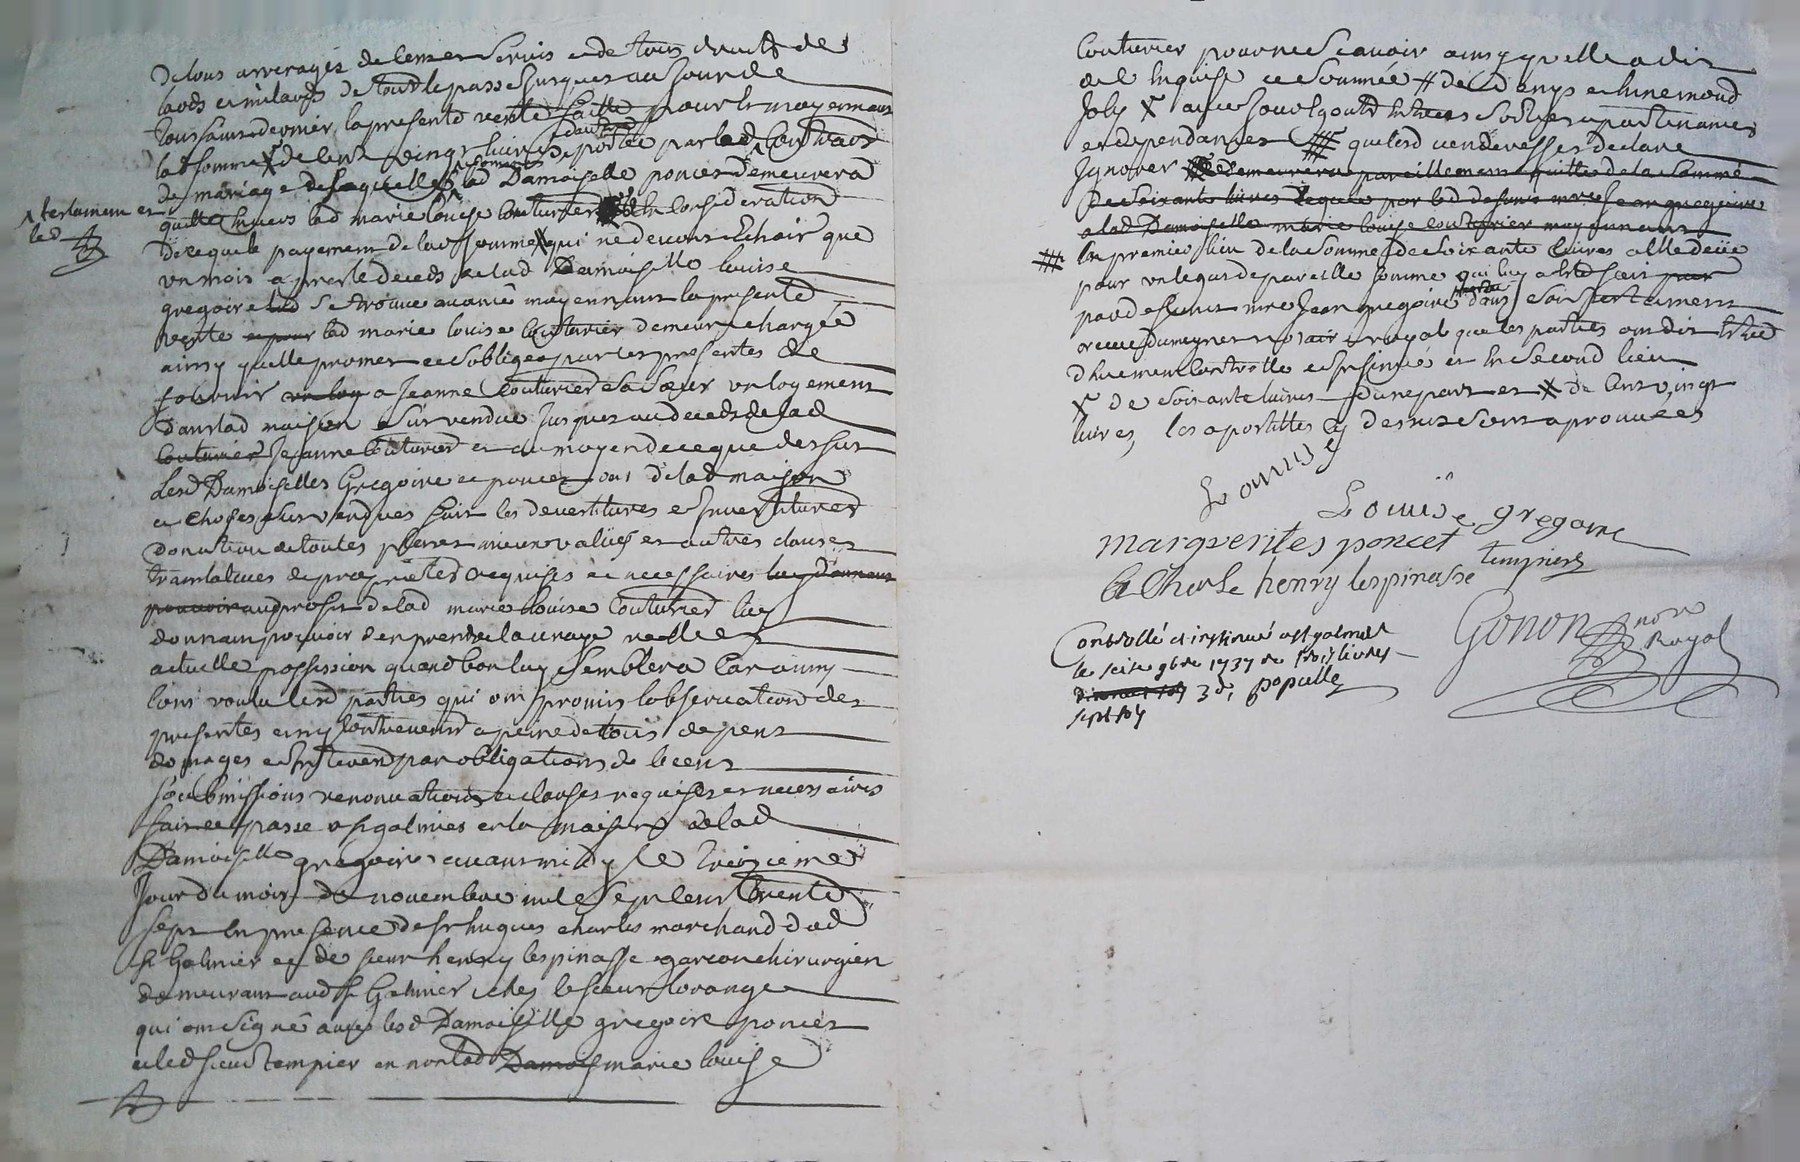 de tous arrerages de cens et servis et de tous droits de
lods et milods de tout le passé jusques au jour de
toussaint dernier, la presente vente faitte pour et moyennant
lad somme X de cent vingt livres de portée par led Contract
de mariage de laquelle lad Damoiselle poncet demeurera
quitte envers lad marie louise couturier en consideration
de ce que le payement de lad somme X qui ne devoit Echoir que
un mois apres le deceds de lad Damoiselle louise
gregoire se trouve avancé moyennant la presente
vente lad marie louise couturier demeure chargée
ainsy quelle promet et s'oblige par ces presentes de
fournir a Jeanne Couturier sa sœur un logement
dans lad maison sus vendue jusques au deceds de lad
Couturier Jeanne Couturier et au moyen de ce que dessus
Lesd Damoiselles Gregoire et poncet ont de lad maison
et choses sus vendues fait les devestitures et investitures
donation de toutes plus et mieux values et autres clauses
translatives de proprieté requises et necessaires luy donnant
pouvoir au profit de lad marie louise Couturier luy
donnant pouvoir d'en prendre la vraye reelle
actuelle possession quand bon luy semblera Car ainsy
l'ont voulu lesd parties qui ont promis l'observation des
presentes et ny contrevenir a peine de tous depens
domages et interest par obligations de biens
soubmissions renonciations et clauses requises et necessaires
fait et passé a st galmier en la maison de lad
Damoiselle gregoire avant midy le treizieme
Jour du mois de novembre mil sept cent trente
sept en presence de sr hugues charles marchand dud
st Galmier et de sieur henry lespinasse garcon chirurgien
demeurant aud st Galmier chez le sieur lorange
qui ont signé avec lesd Damoiselle gregoire poncet
et led sieur tempier et non lad Damois marie louise
X testament et
led
Couturier pour ne scavoir ainsy quelle a dit
de l'enquise et sommée # de Denys et hinemond
Joly X avec
et dependances #### que lesd venderesses declare
Ignorer demeurera pareillement quitte de la somme
De soixante livres leguée par led defunt mre Jean gregoire
a lad Damoiselle marie louise couturier moyennant
#### En premier lieu de la somme de soixante livres a elle deüe
pour un legat de pareille somme qui luy a été fait par
paud defunt mre Jean gregoire dans son testament
recu notaire royal que les parties ont dit être
duement controllé et insinué et en second lieu
X de soixante livres d'une part et X de cent vingt
livres, les apostilles cy dessus sont aprouvées
Louis
Louise gregoire
marguerites poncet
tempier
Charle henry lespinasse
Gonon nore
Royal
Controllé et insinué a st galmier
le seize 9bre 1737 re trois livres
3 d, populle
sept sols